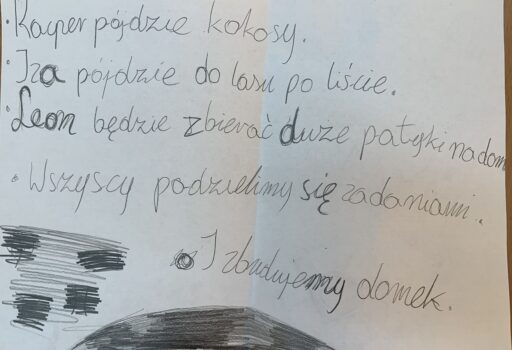 • Kacper pójdzie kokosy.
• Iza pójdzie do lasu po liście.
• Leon będzie zbierać duże patyki na dom
• Wszyscy podzielimy się zadaniami.
• I zbudujemy domek.